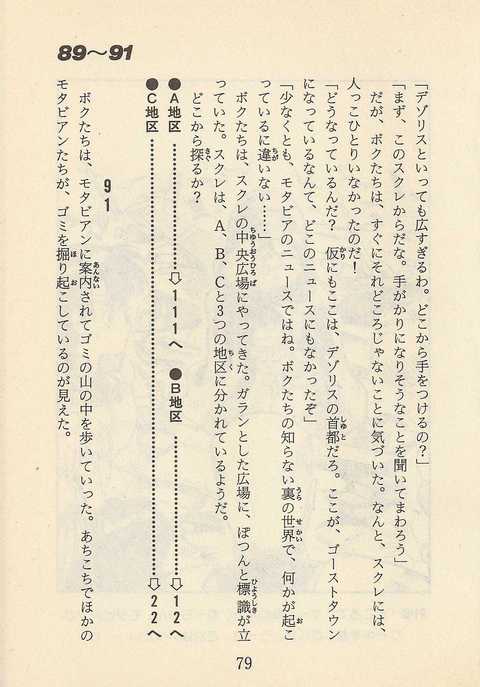 89〜91
「デゾリスといっても広すぎるわ。どこから手をつけるの？」
「まず、このスクレからだな。手がかりになりそうなことを聞いてまわろう」
だが、ボクたちは、すぐにそれどころじゃないことに気づいた。なんと、スクレには、
人っこひとりいなかったのだ！
「どうなっているんだ？　仮にもここは、デゾリスの首都だろ。ここが、ゴーストタウン
になっているなんて、どこのニュースにもなかったぞ」
「少なくとも、モタビアのニュースではね。ボクたちの知らない裏の世界で、何かが起こ
っているに違いない……」
ボクたちは、スクレの中央広場にやってきた。ガランとした広場に、ぽつんと標識が立
っていた。スクレは、A、B、Cと3つの地区に分かれているようだ。
どこから探るか？
●A地区…………⇨111へ　●B地区…………⇨12へ
●C地区…………⇨22へ
91
ボクたちは、モタビアンに案内されてゴミの山の中を歩いていった。あちこちでほかの
モタビアンたちが、ゴミを掘り起こしているのが見えた。
79